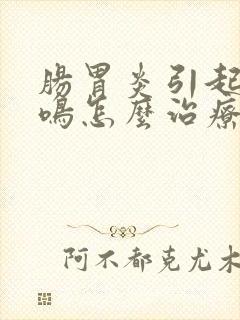 腸胃炎引起
鳴怎麼治療
阿不都克尤木